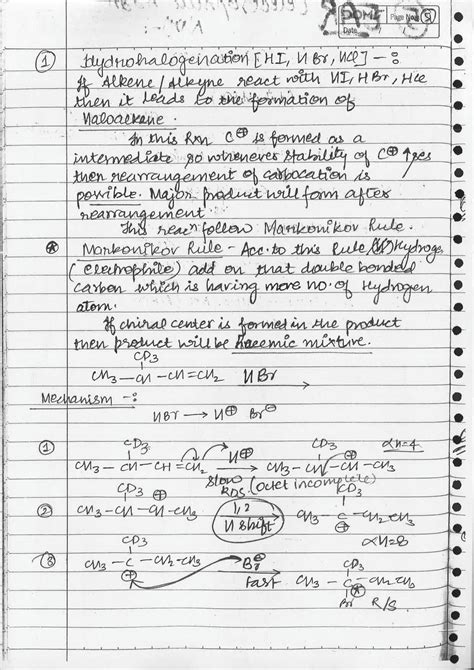 DOMS Page No. 51
Date
① Hydrohalogenation [HI, HBr, HCl] -:
If Alkene/Alkyne react with HI, HBr, HCl
then it leads to the formation of
Haloalkane.
In this Rxn C⊕ is formed as a
intermediate so whenever stability of C⊕ ↑ses
then rearrangement of carbocation is
possible. Major product will form after
rearrangement
This reacn follow Markonikov Rule.
⊛ Markonikov Rule - Acc. to this Rule Hydroge
(electrophile) add on that double bonded
carbon which is having more no. of Hydrogen
atom.
If chiral center is formed in the product
then product will be Racemic mixture.
CD3
CH3-CH-CH=CH2 HBr
Mechanism -:
HBr → H⊕ Br⊖
CD3 H⊕ CD3 ⊕ αH=4
① CH3-CH-CH=CH2 → CH3-CH-CH-CH3
slow
RDS (octet incomplete)
CD3 ⊕ 1,2 CD3
② CH3-CH-CH-CH3 H shift CH3-C-CH2-CH3
⊕
αH=8
CD3 CD3
③ CH3-C-CH2-CH3 Br⊖ → CH3-C-CH2-CH3
⊕ fast Br R/S